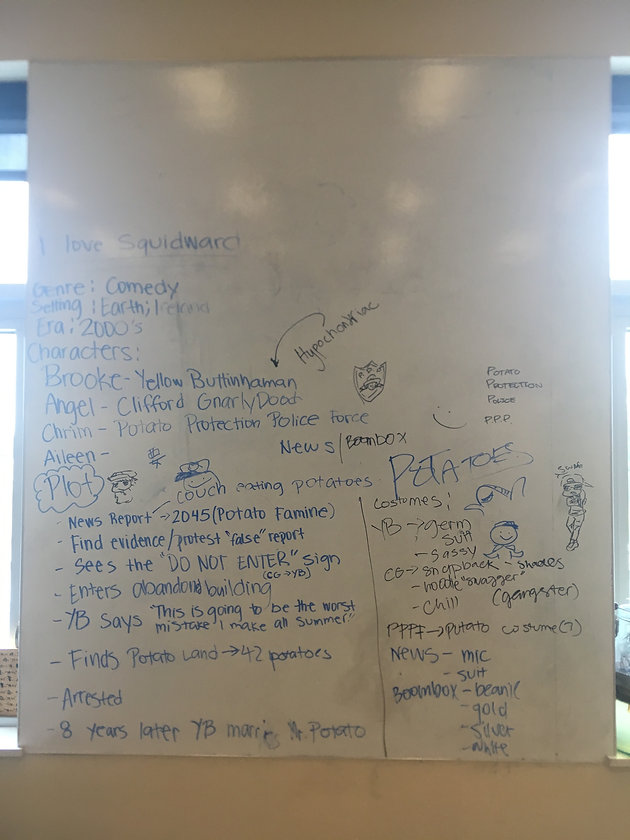 I love Squidward
Genre: Comedy
Setting: Earth; Ireland
Era: 2000's
Characters:
Hypochondriac
Brooke - Yellow Buttinhaman
Angel - Clifford GnarlyDood
Chrim - Potato Protection Police Force
Aileen - News/Boombox
POTATO
PROTECTION
POLICE
P.P.P
Plot
couch eating potatoes
- News Report → 2045 (Potato Famine)
- Find evidence/protest "false" report
- Sees the "DO NOT ENTER" sign
(CG → YB)
- Enters abandond building
- YB says "This is going to be the worst
mistake I make all summer"
- Finds Potato Land → 42 potatoes
- Arrested
- 8 years later YB marries Mr. Potato
PETATOES
Costumes:
YB → germ
suit
- sassy
CG → snapback - shades
- hoodie "swagger"
- chill (gangster)
PPPF → putato costume(?)
News - mic
- suit
Boombox - beanie
- gold
- silver
- white